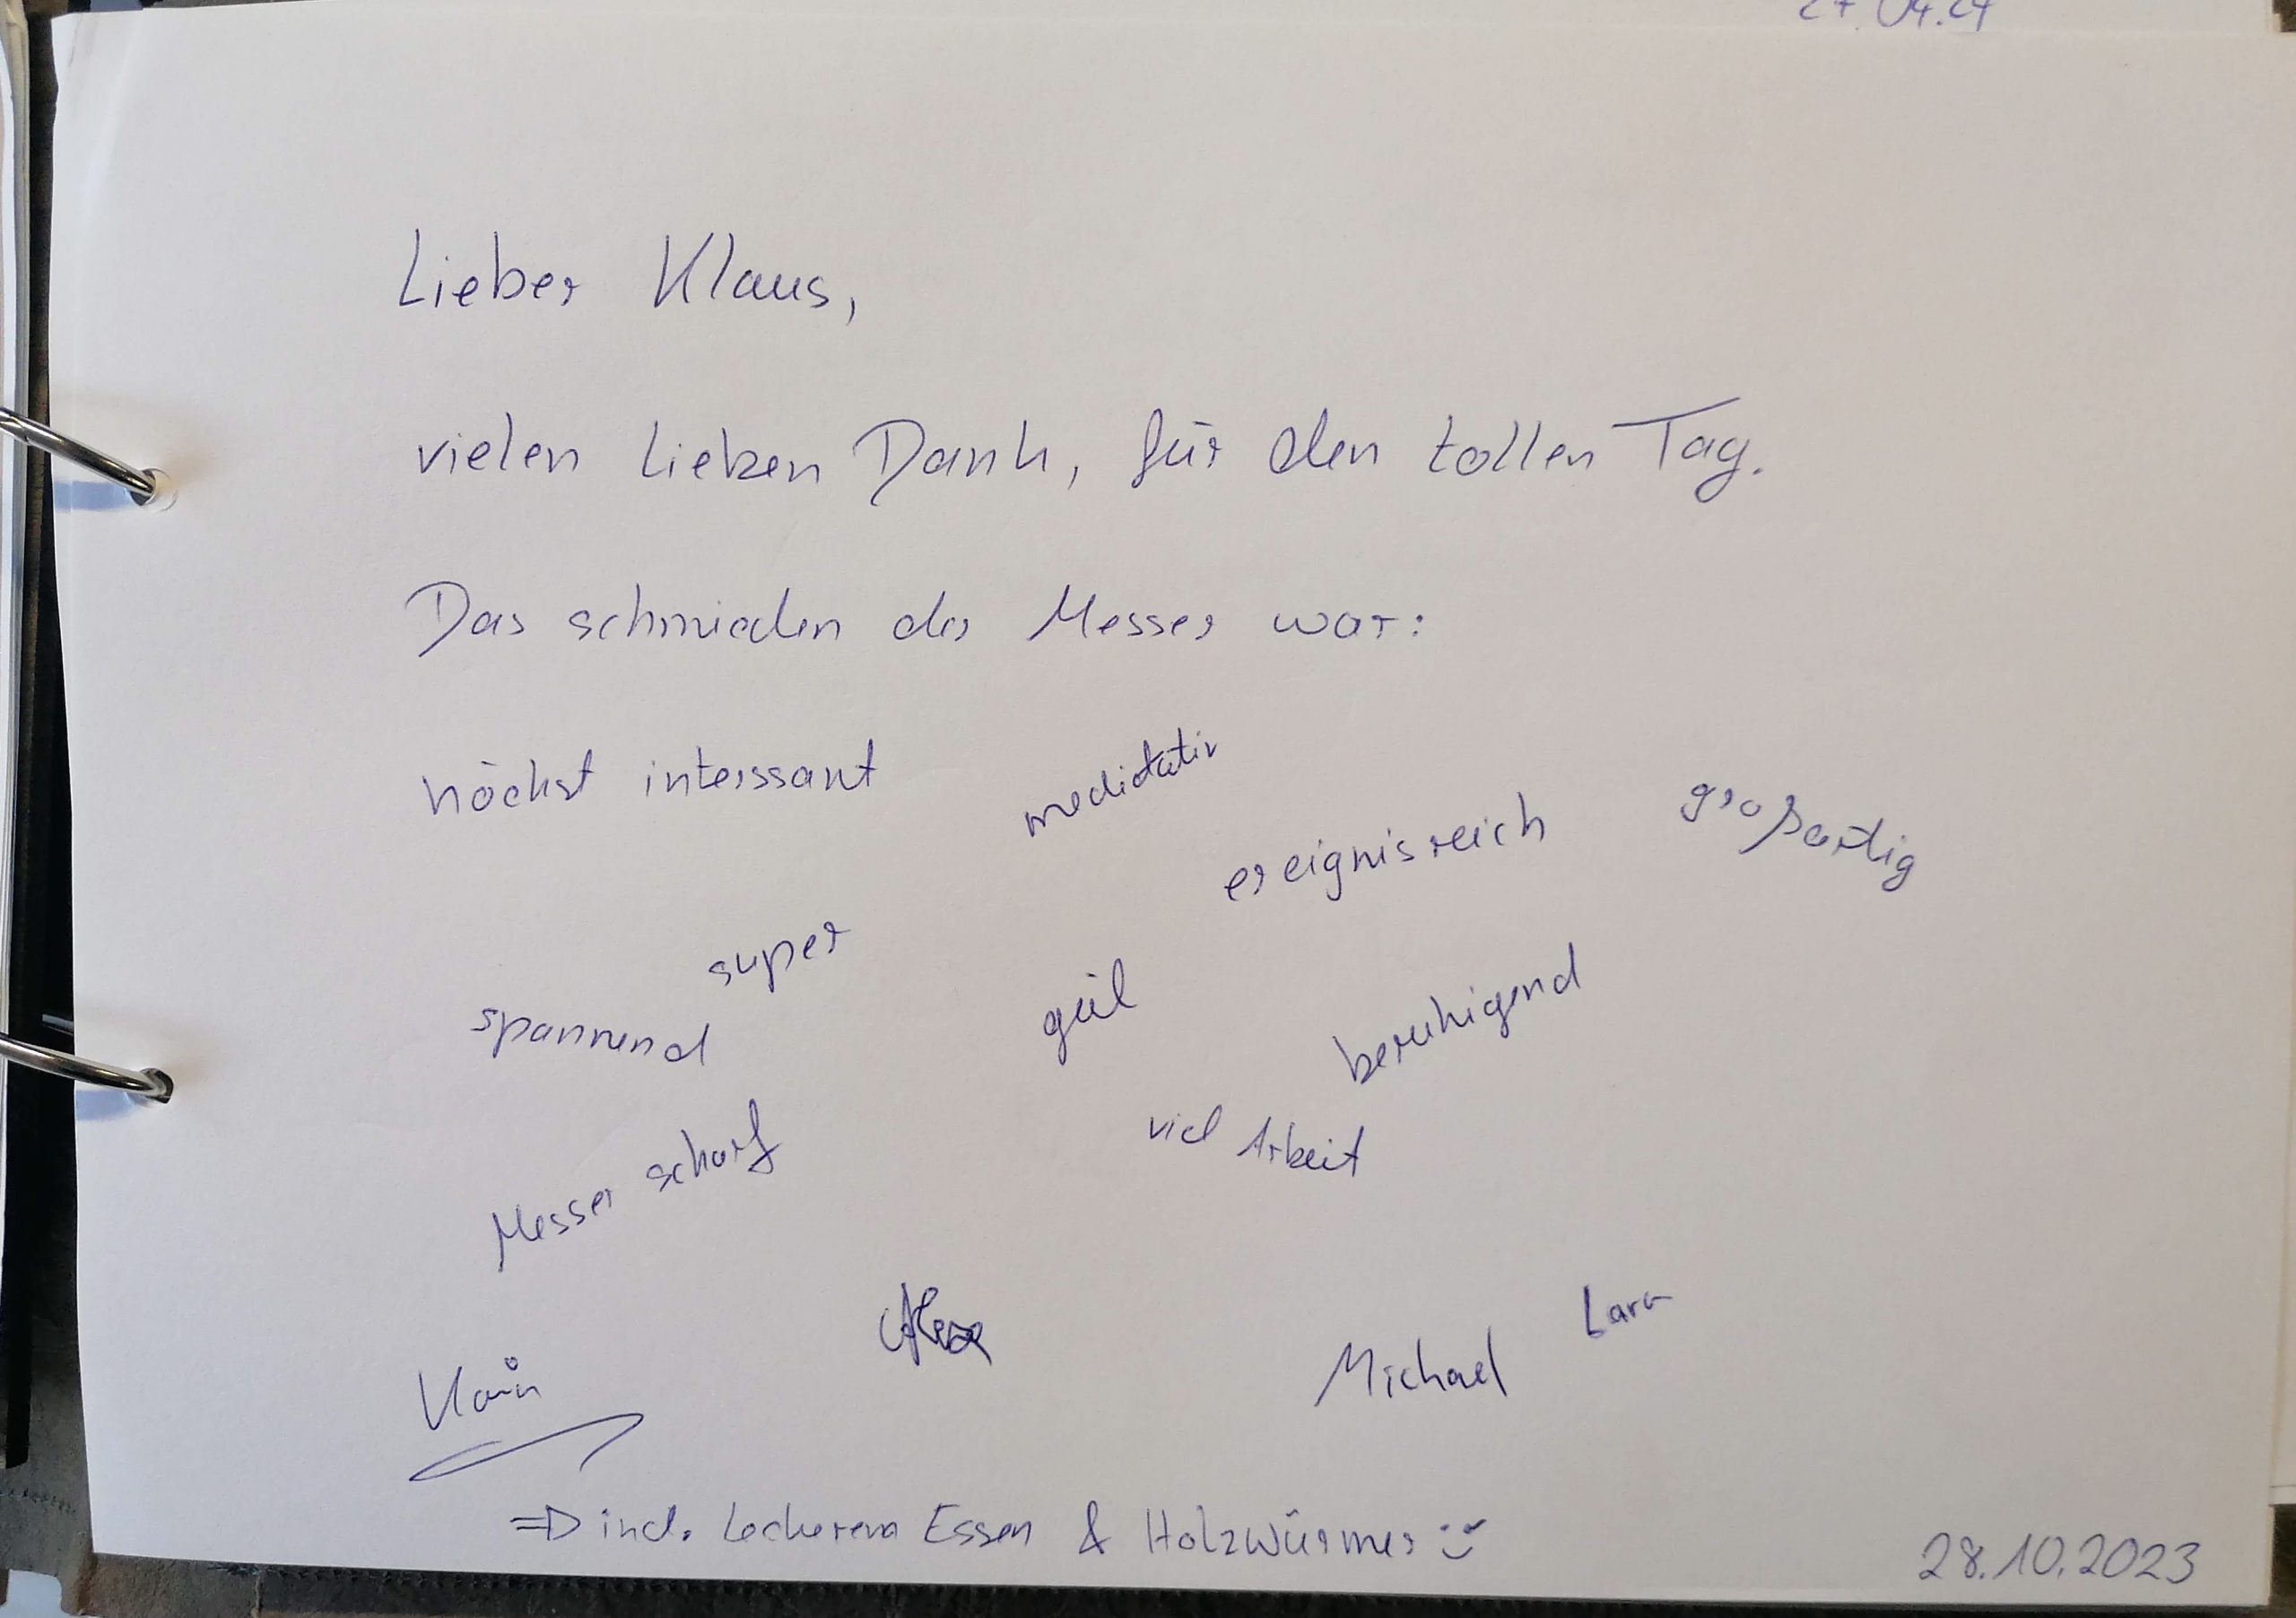 Lieber Klaus,
vielen lieben Dank, für den tollen Tag.
Das schmieden der Messer war:
höchst interssant
meditativ
ereignisreich
großartig
super
spannend
geil
beruhigend
Messer scharf
viel Arbeit
Alex
Michael
Lara
=> incl. leckerem Essen & Holzwürmer :)
28.10.2023